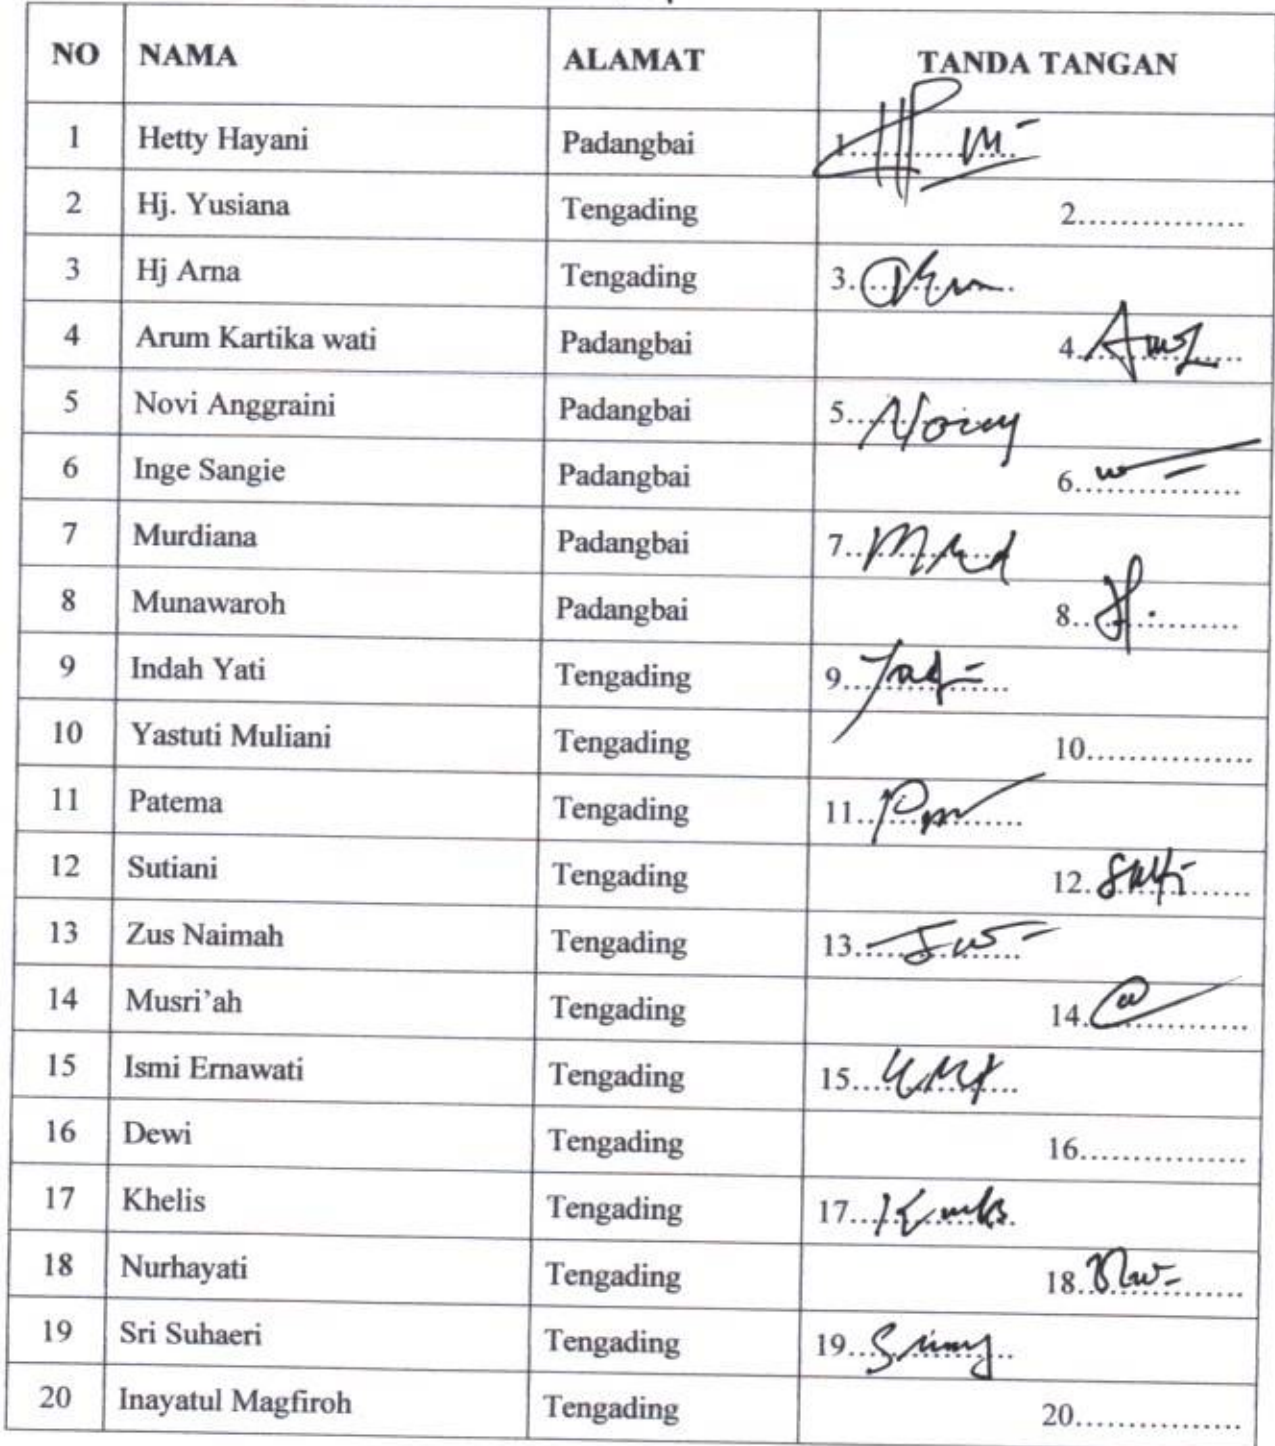 NO NAMA ALAMAT TANDA TANGAN
1 Hetty Hayani Padangbai 1................
2 Hj. Yusiana Tengading 2................
3 Hj Arna Tengading 3................
4 Arum Kartika wati Padangbai 4................
5 Novi Anggraini Padangbai 5................
6 Inge Sangie Padangbai 6................
7 Murdiana Padangbai 7................
8 Munawaroh Padangbai 8................
9 Indah Yati Tengading 9................
10 Yastuti Muliani Tengading 10................
11 Patema Tengading 11................
12 Sutiani Tengading 12................
13 Zus Naimah Tengading 13................
14 Musri'ah Tengading 14................
15 Ismi Ernawati Tengading 15................
16 Dewi Tengading 16................
17 Khelis Tengading 17................
18 Nurhayati Tengading 18................
19 Sri Suhaeri Tengading 19................
20 Inayatul Magfiroh Tengading 20................